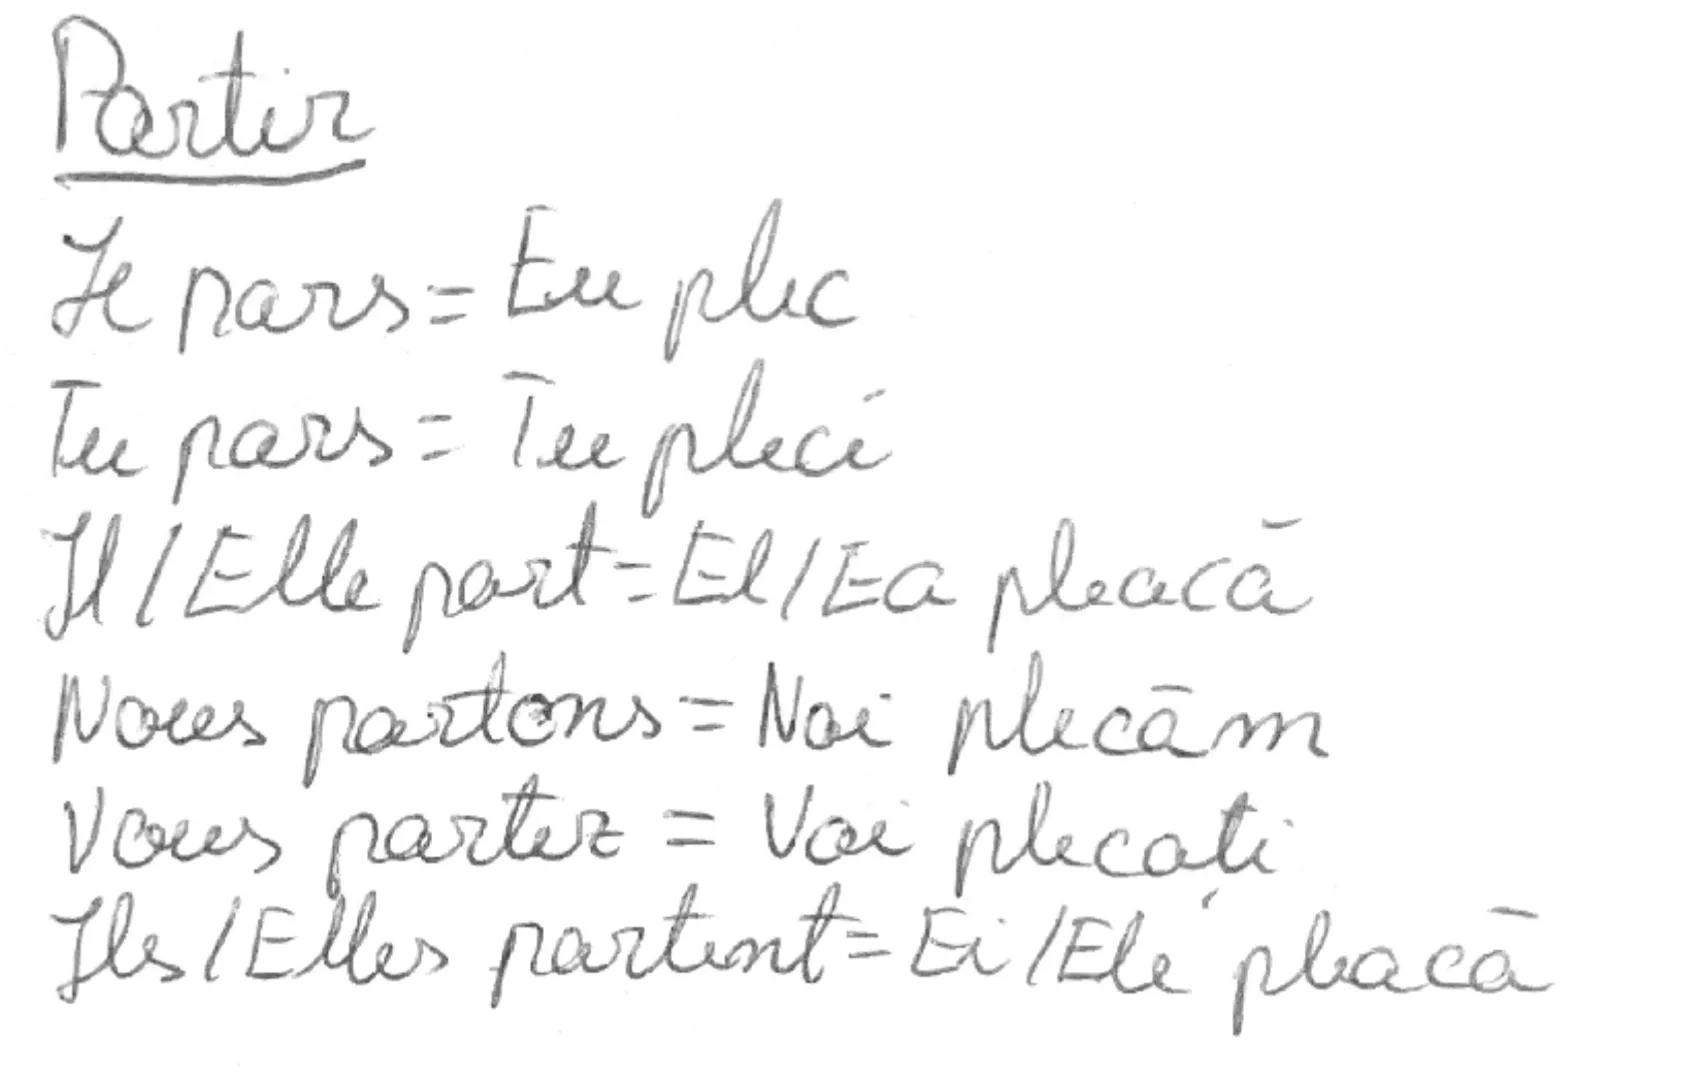 Partir
Je pars = Eu plec
Tu pars = Tu pleci
Il / Elle part = El / Ea pleacă
Nous partons = Noi plecăm
Vous partez = Voi plecați
Ils / Elles partent = Ei / Ele pleacă